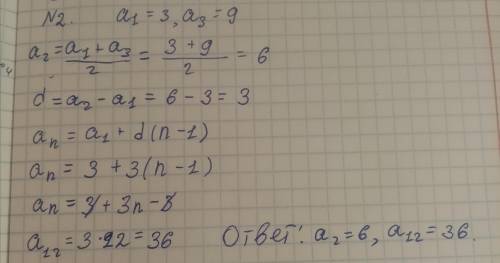 №2. a₁ = 3, a₃ = 9
a₂ = (a₁ + a₃)/2 = (3 + 9)/2 = 6
d = a₂ - a₁ = 6 - 3 = 3
aₙ = a₁ + d(n - 1)
aₙ = 3 + 3(n - 1)
aₙ = 3 + 3n - 3
a₁₂ = 3·12 = 36 Ответ: a₂ = 6, a₁₂ = 36.